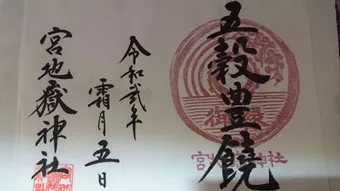 五穀豊饒
令和弐年
霜月五日
宮地嶽神社